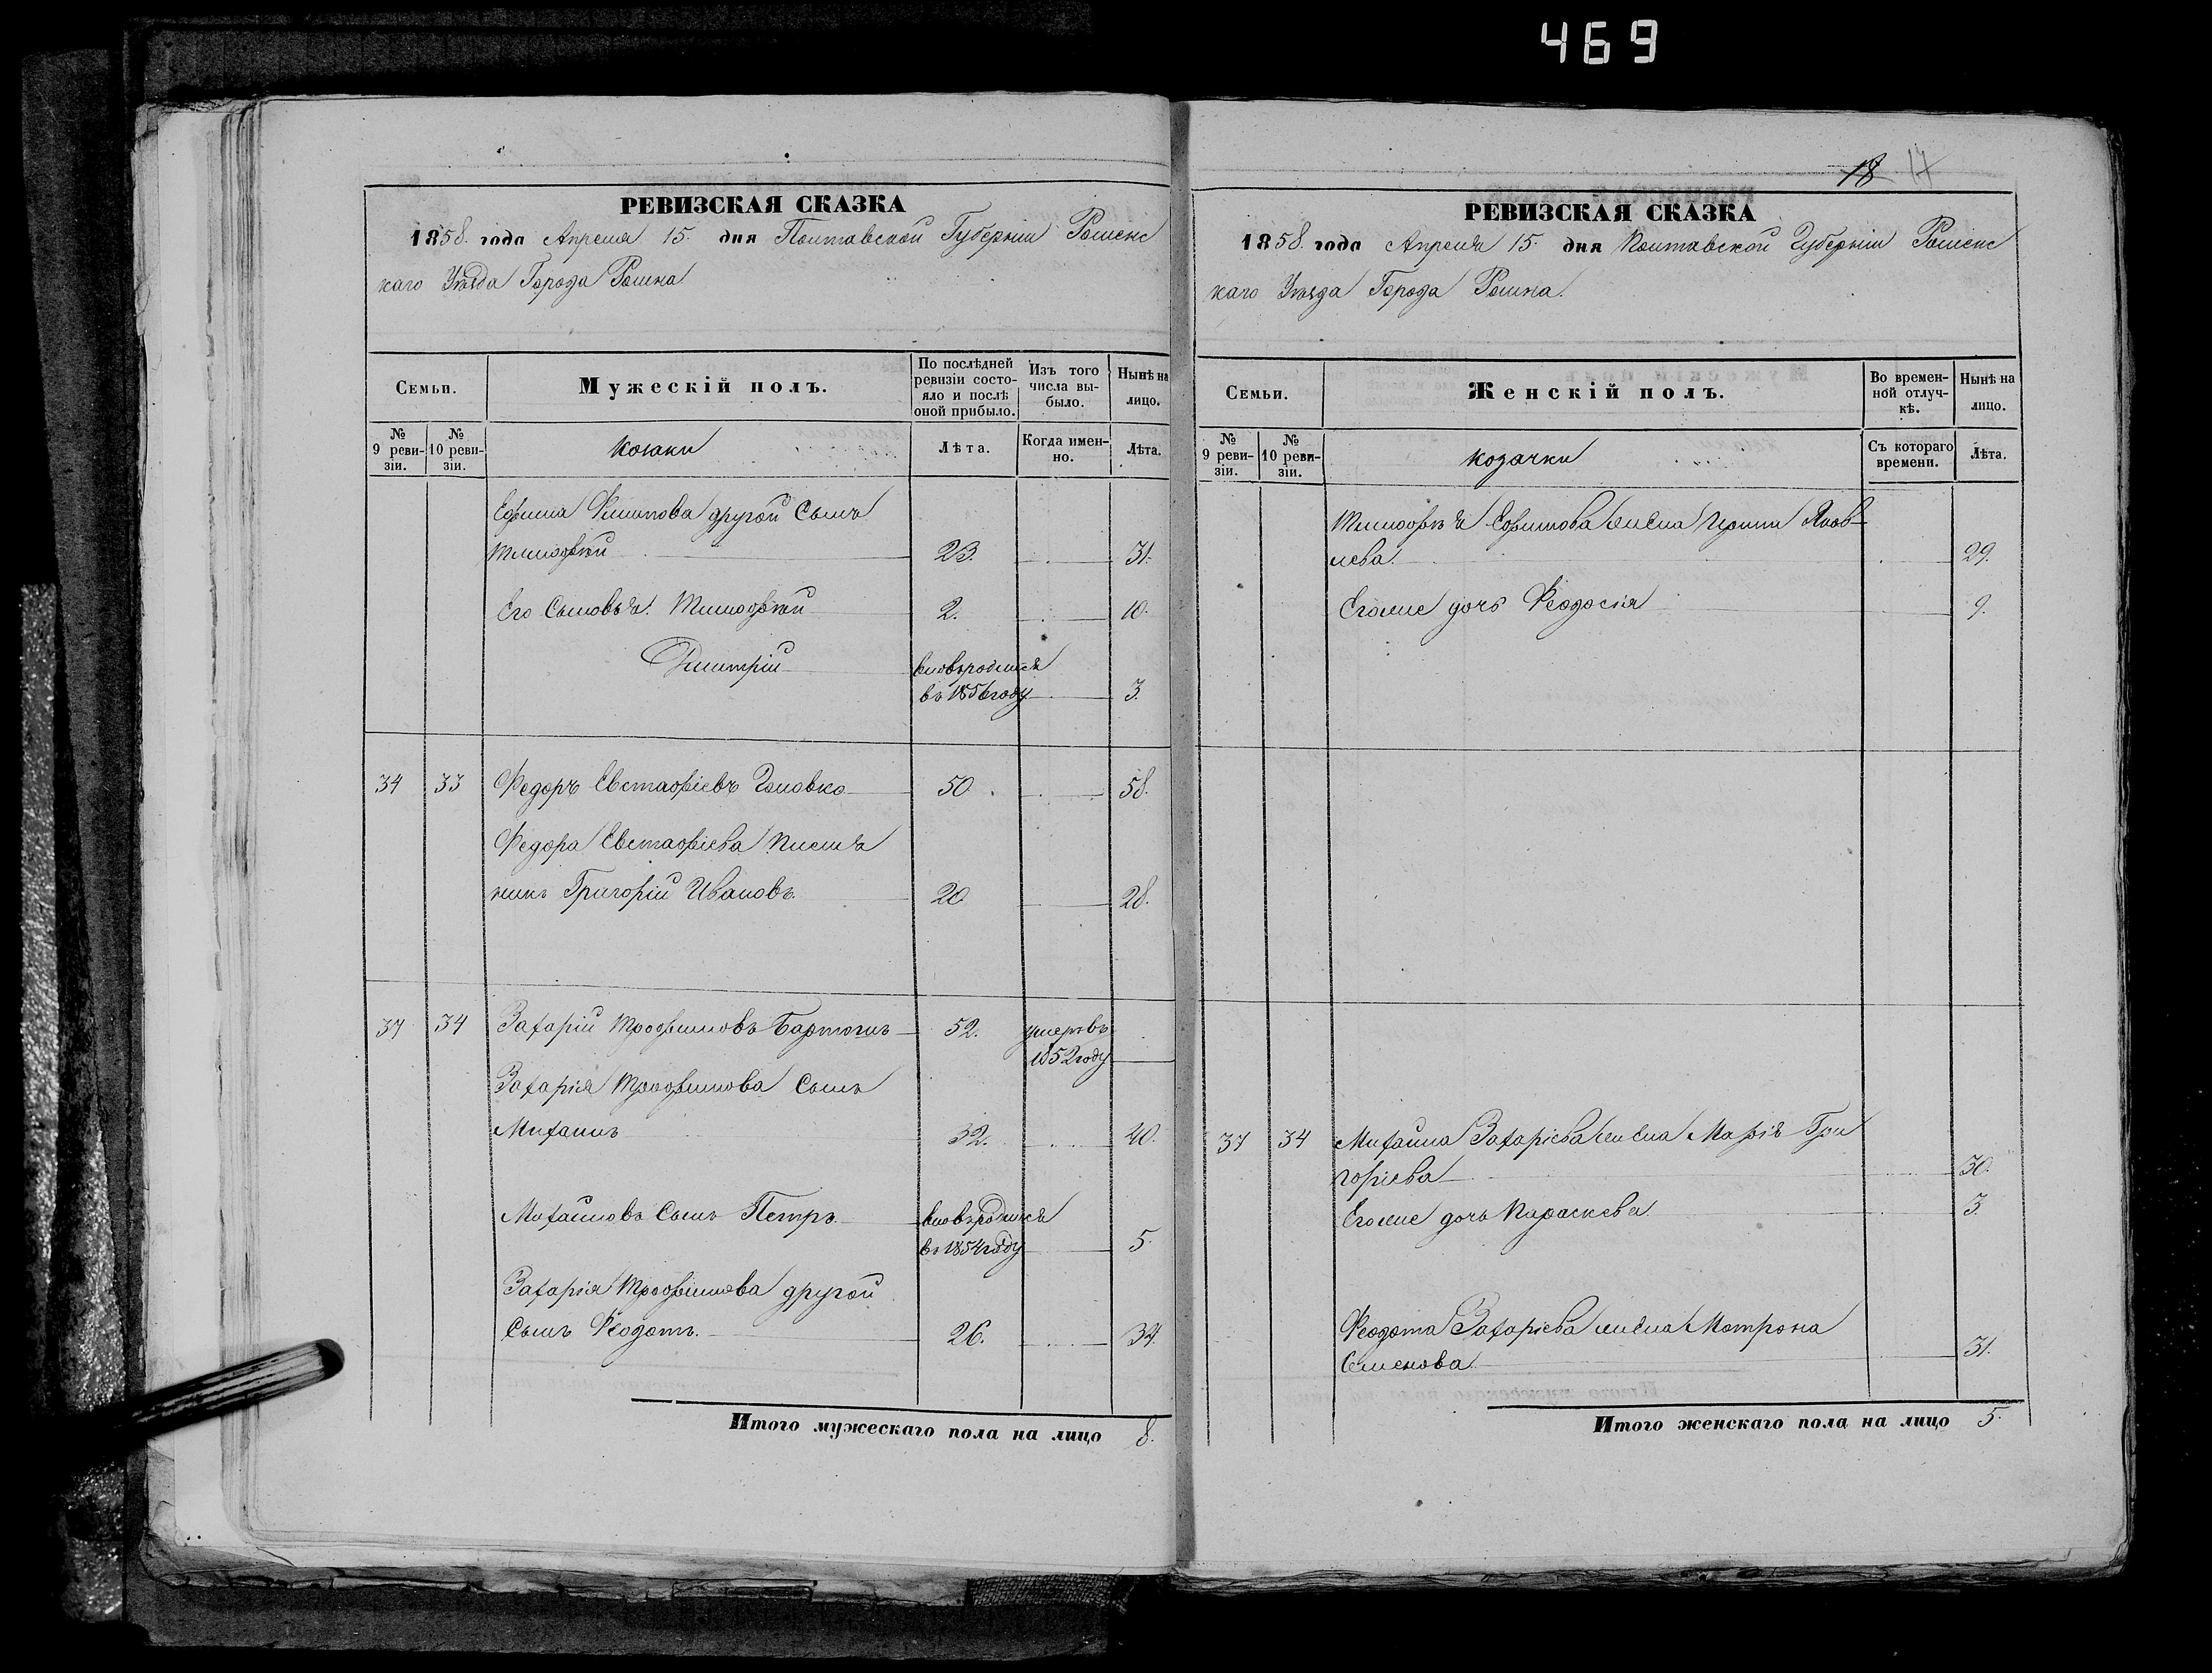 469
РЕВИЗСКАЯ СКАЗКА
1858. года Апреля 15. дня Полтавской Губерніи Роменс
каго Уѣзда Города Ромна
Семьи.
Мужескій полъ.
По послѣдней ревизіи состояло и послѣ оной прибыло.
Изъ того числа выбыло.
Нынѣ на лицо.
№ 9 ревизіи.
№ 10 ревизіи.
козаки
Лѣта.
Когда именно.
Лѣта.
Ефима Филипова другой Сынъ
Тимофѣй 23. 31.
Его Сыновья. Тимофѣй 2. 10.
Дмитрій вновьродился
въ 1856году 3.
34 33 Федоръ Евстафіевъ Головко 50 58.
Федора Евстафіева племя
никъ Григорій Ивановъ. 20 28.
37 34 Захарій Трофимовъ 52. умеръвъ
1852году
Захарія Трофимова Сынъ
Михаилъ 32. 40.
Михаиловъ Сынъ Петръ вновьродился
въ 1854году 5.
Захарія Трофимова другой
Сынъ Феодотъ. 26. 34.
Итого мужескаго пола на лицо 8.
18 17
РЕВИЗСКАЯ СКАЗКА
1858. года Апреля 15. дня Полтавской Губерніи Роменс
каго Уѣзда Города Ромна.
Семьи.
Женскій полъ.
Во временной отлучкѣ.
Нынѣ на лицо.
№ 9 ревизіи.
№ 10 ревизіи.
козачки
Съ котораго времени.
Лѣта.
Тимофѣя Ефимова жена Ирина Яков-
лева. 29.
Егоже дочь Феодосія 9.
37 34 Михаила Захаріева жена Марія Гри
горіева 30.
Егоже дочь Параскева 3.
Феодота Захаріева жена Матрона
Семенова 31.
Итого женскаго пола на лицо 5.